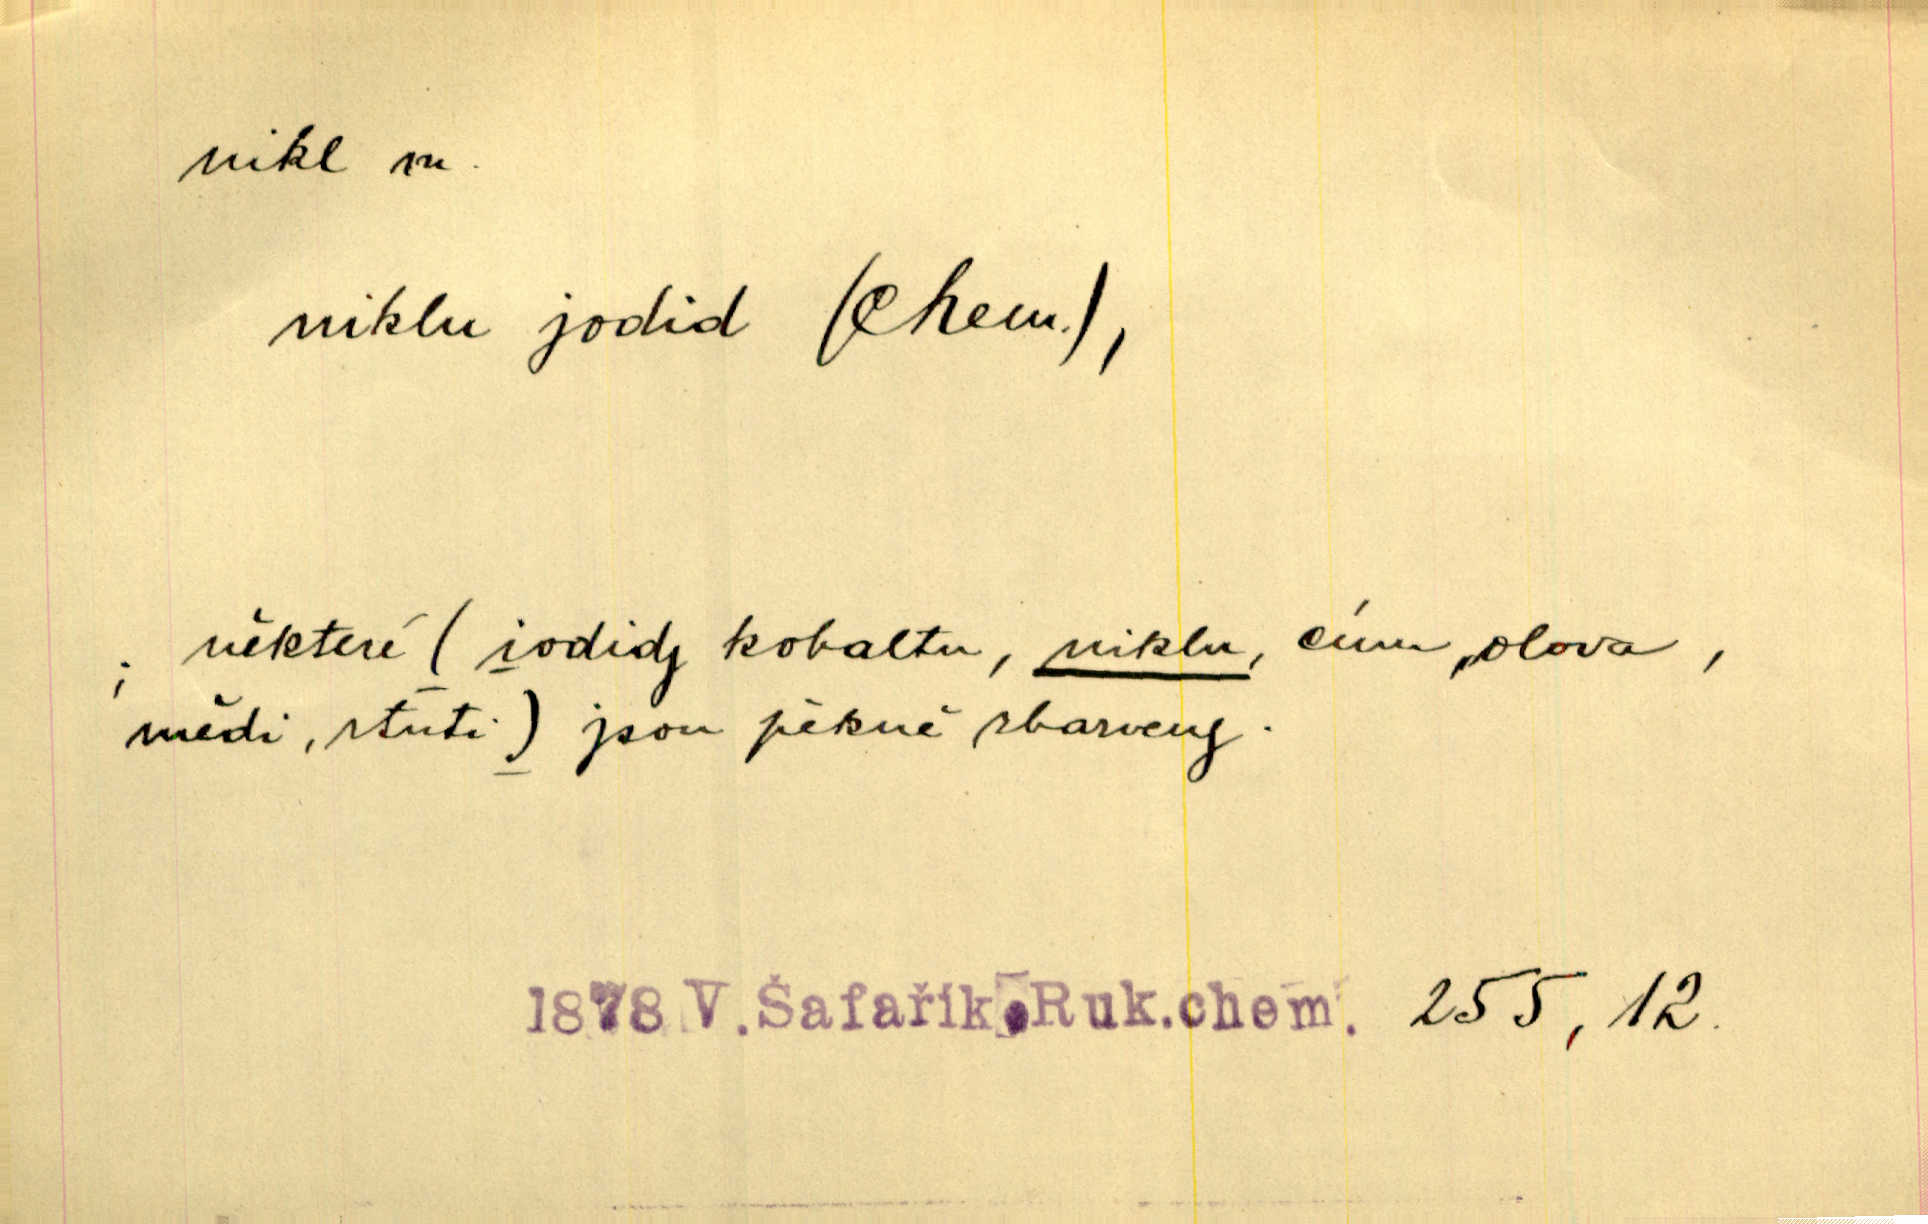 nikl m.
niklu jodid (Chem.),
; některé ( iodidy kobaltu, niklu, cínu, olova,
mědi, rtuti ) jsou pěkně zbarveny.
1878 V. Šafařík. Ruk.chem. 255, 12.